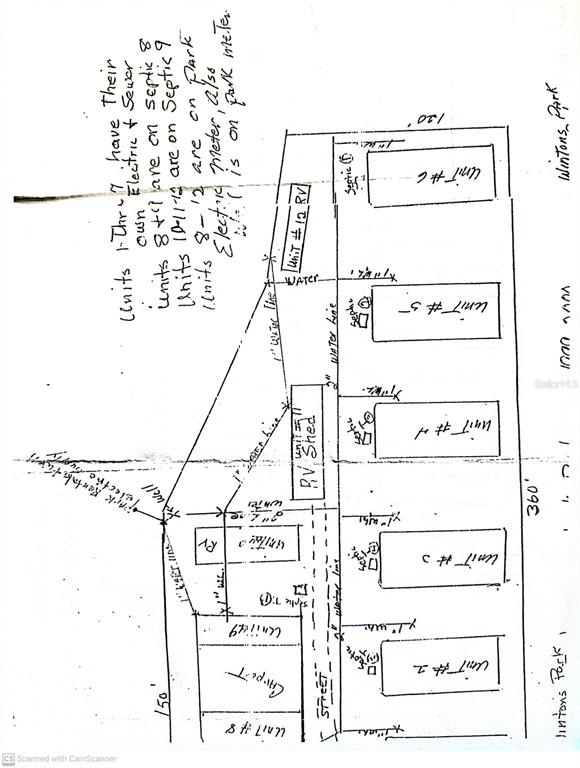 Units 1-Thru 7 have Their
own Electric & Sewer
Units 8+9 are on Septic 8
Units 10-11-12 are on Septic 9
Units 8-12 are on Park
Electric Meter, also
is on Park meter
120'
1" W.L.
Septic
Unit # 6
Unit # 12 RV
WATER
1" W.L.
Septic
Unit # 5
1" Water Line
2" Water Line
1" W.L.
Septic
Unit # 4
Unit # 11
RV Shed
1" Water Line
electric
Well
2"
Water
RV
1" W.L.
1" W.L.
Septic
Unit # 3
360'
1" Water Line
Septic
Unit # 9
2" Water Line
1" W.L.
Septic
Unit # 2
CarporT
Unit # 8
STREET
150'
1" W.L.
Wintons Park
intons Park
StellarMLS
CS Scanned with CamScanner